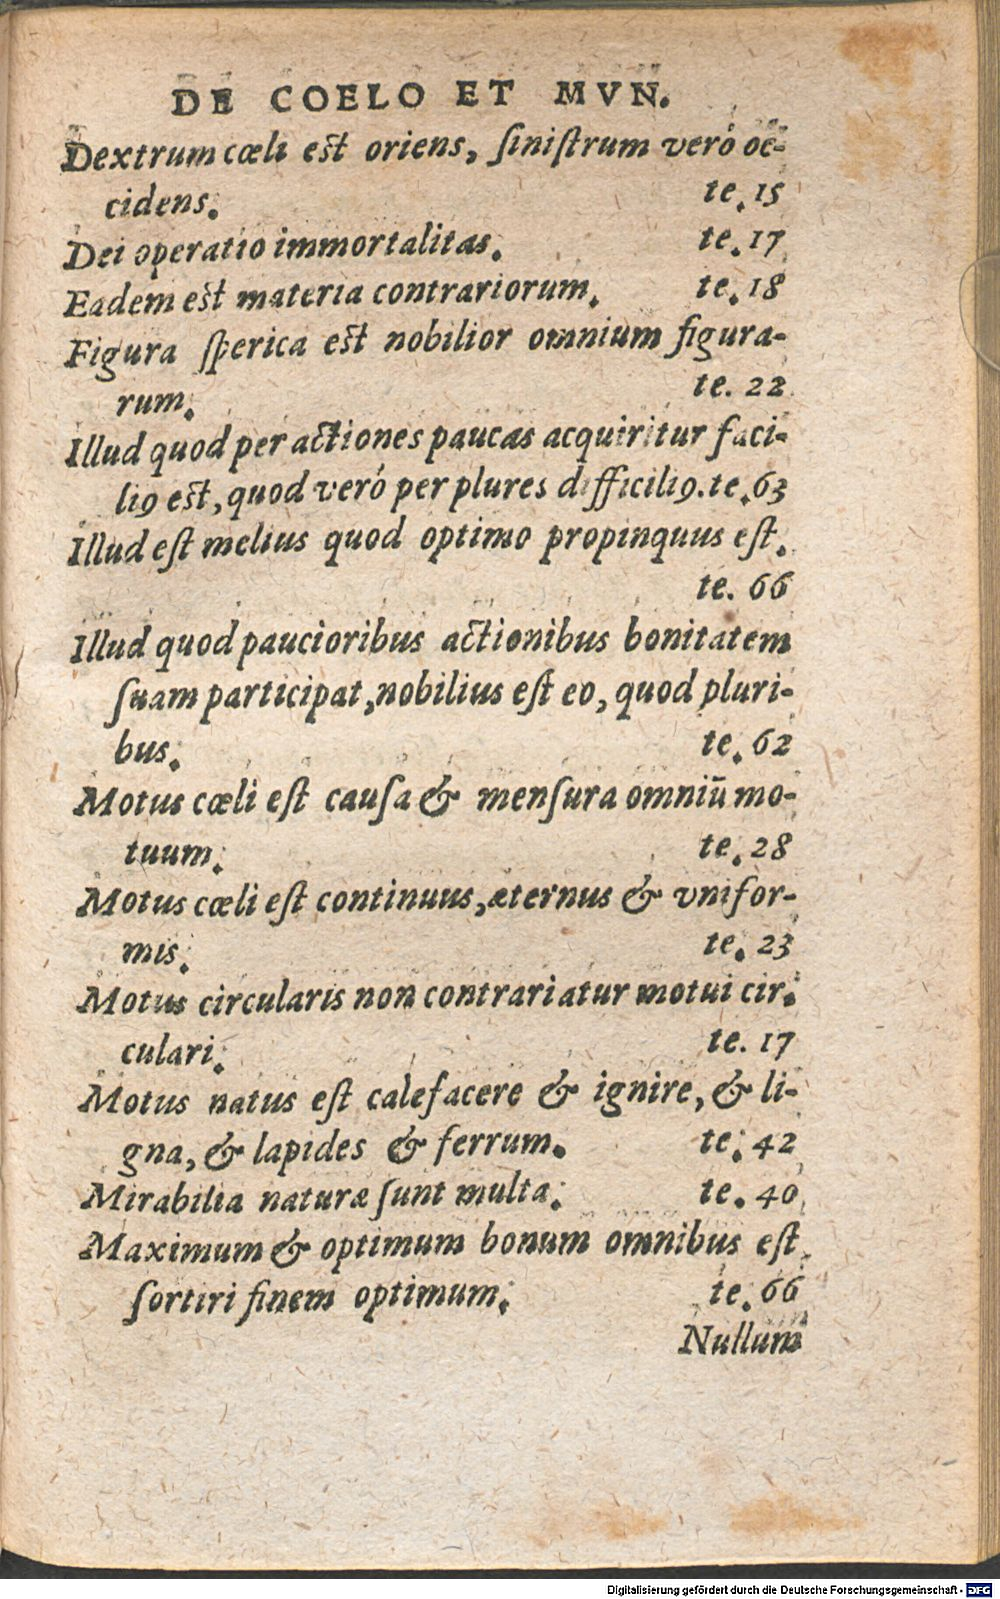 DE COELO ET MVN.
Dextrum cœli est oriens, ſiniſtrum verò oc-
cidens. te. 15
Dei operatio immortalitas. te. 17
Eadem est materia contrariorum. te. 18
Figura ſperica est nobilior omnium figura-
rum. te. 22
Illud quod per actiones paucas acquiritur faci-
liꝰ est, quod verò per plures difficiliꝰ. te. 63
Illud eſt melius quod optimo propinquus eſt.
te. 66
Illud quod paucioribus actionibus bonitatem
ſuam participat, nobilius eſt eo, quod pluri-
bus. te. 62
Motus cœli eſt cauſa & menſura omniū mo-
tuum. te. 28
Motus cœli eſt continuus, æternus & vnifor-
mis. te. 23
Motus circularis non contrariatur motui cir-
culari. te. 17
Motus natus eſt calefacere & ignire, & li-
gna, & lapides & ferrum. te. 42
Mirabilia naturæ ſunt multa. te. 40
Maximum & optimum bonum omnibus eſt
ſortiri finem optimum. te. 66
Nullum
Digitalisierung gefördert durch die Deutsche Forschungsgemeinschaft - DFG